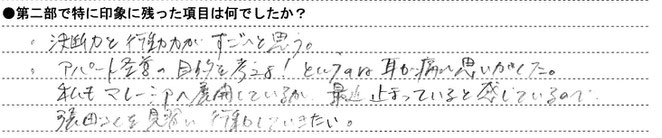 ●第二部で特に印象に残った項目は何でしたか？
・決断力と行動力がすごいと思う。
・アパート経営の目的を考えよ！というのは耳が痛い思いがした。
私もマレーシアへ展開しているが、最近止まっていると感じているので、
張田さんを見習い行動していきたい。